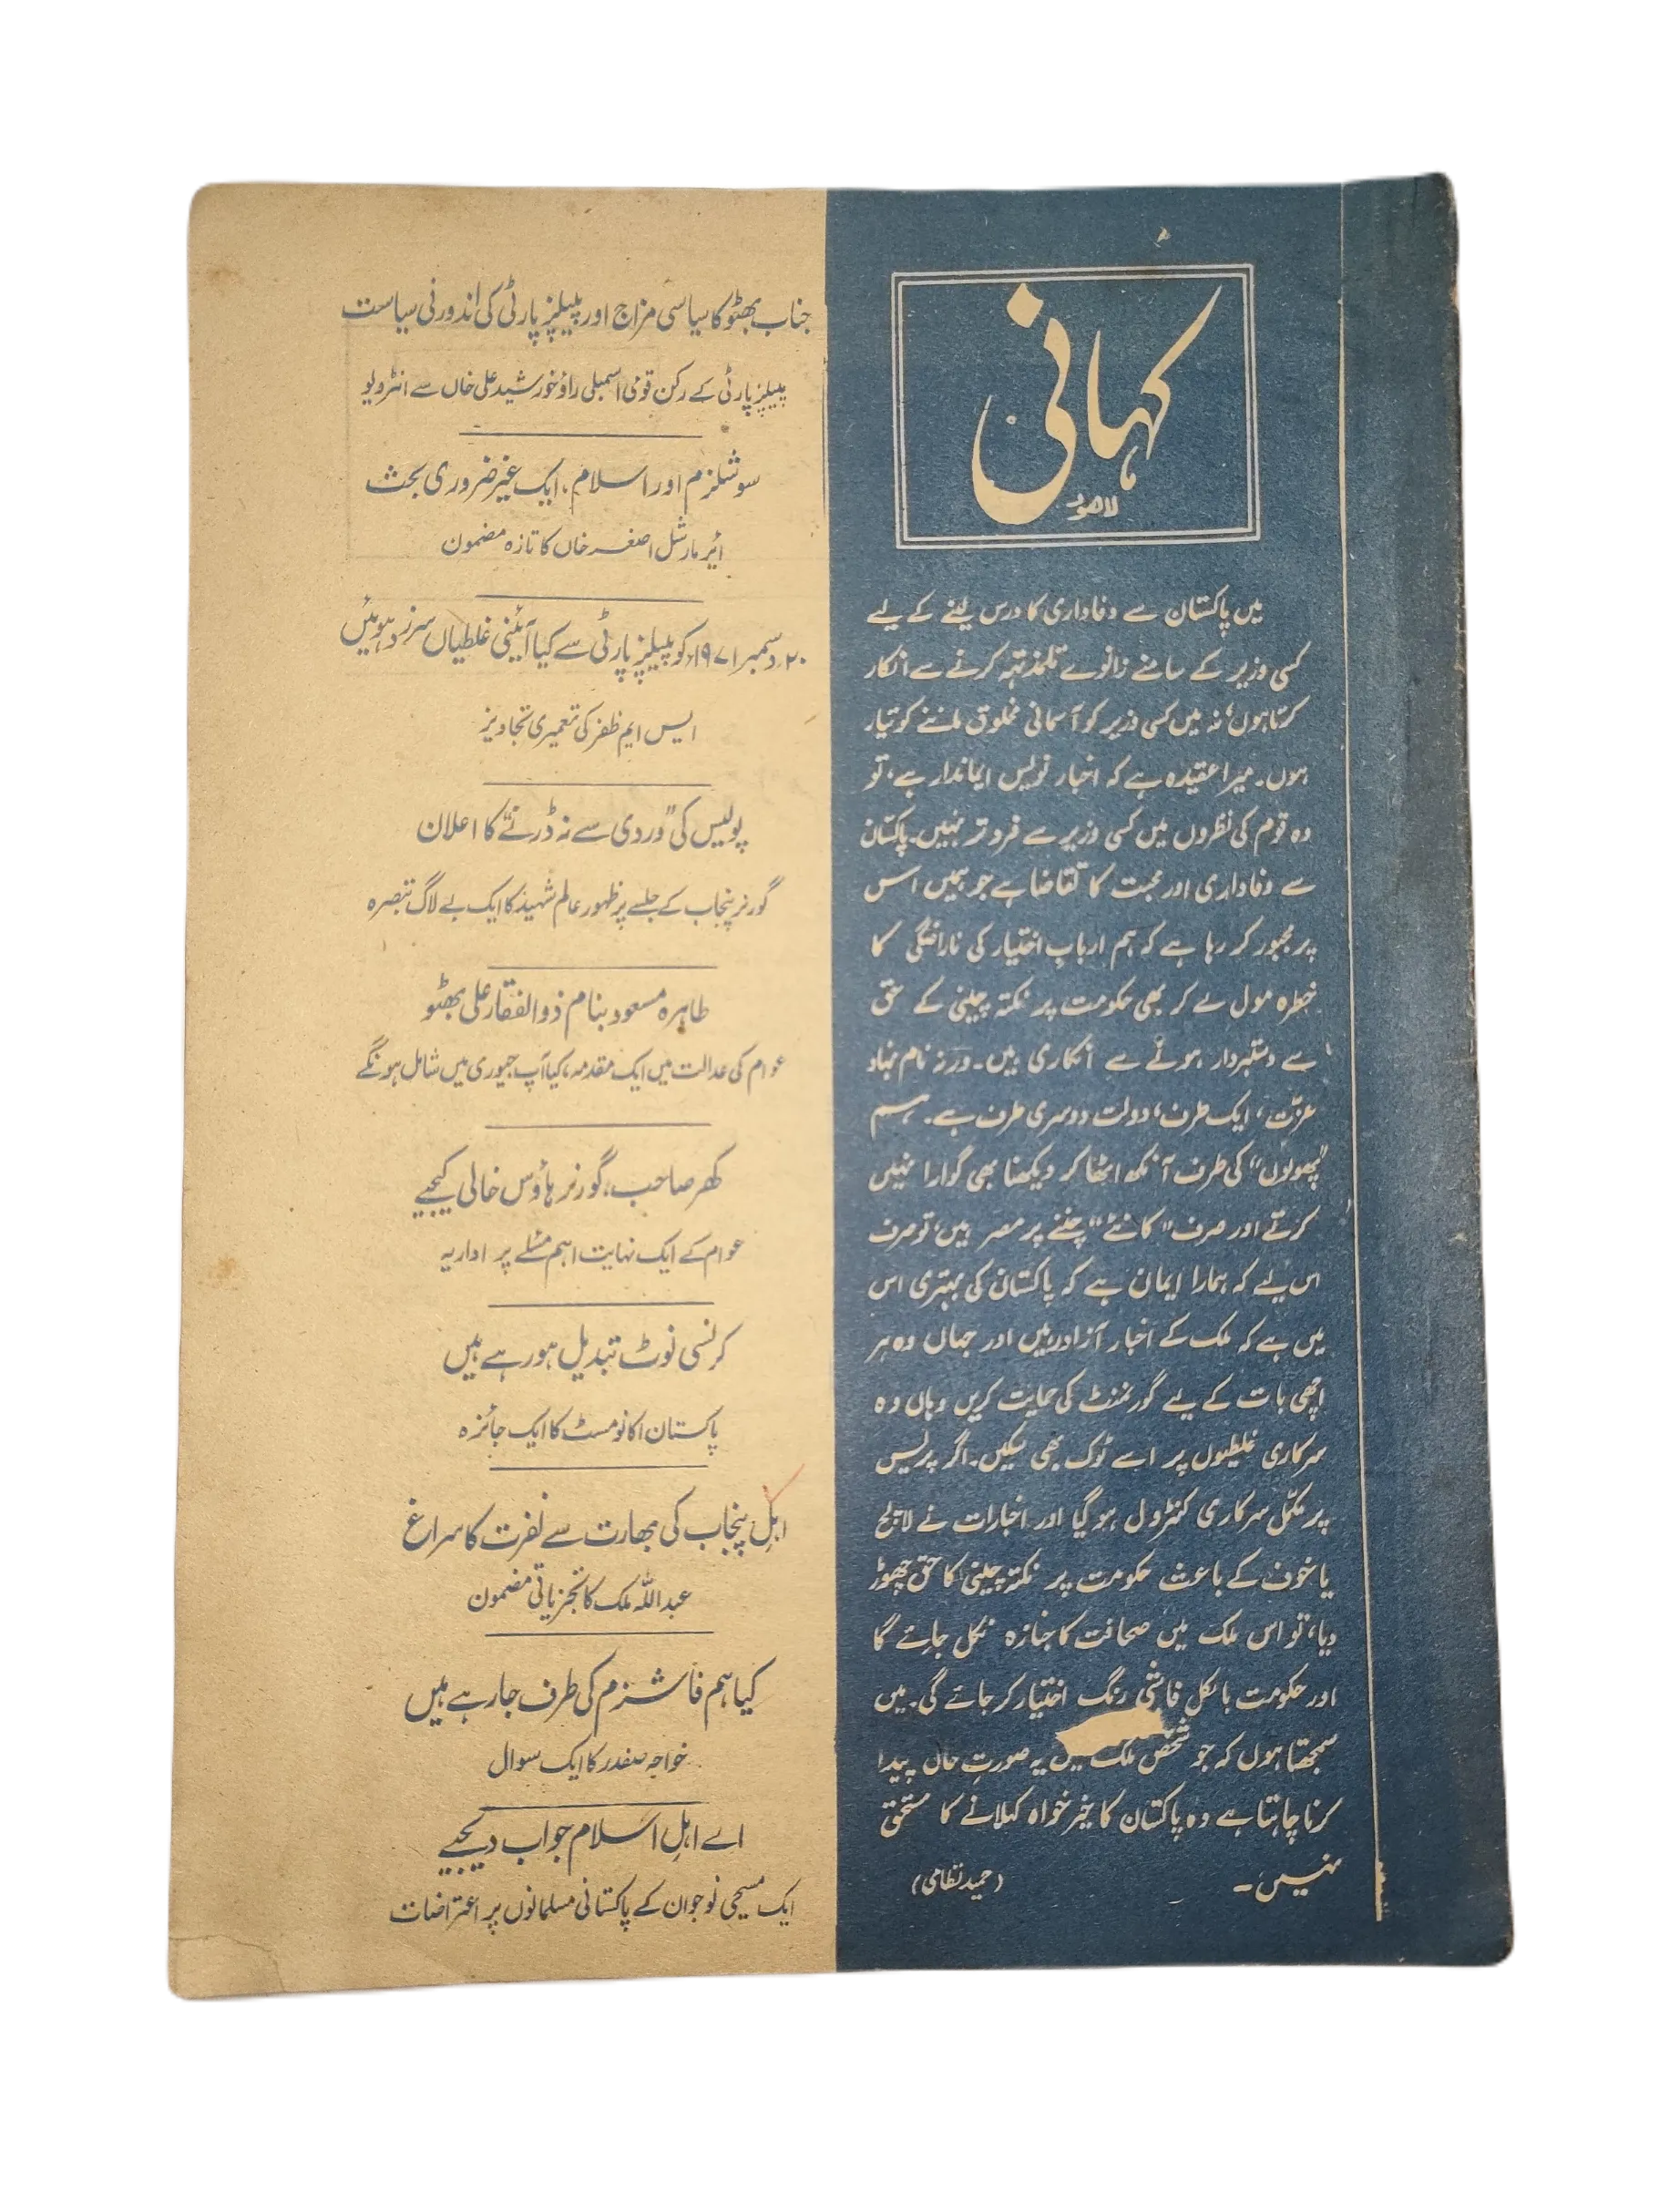 کہانی
لاہور
میں پاکستان سے وفاداری کا درس لینے کے لیے
کسی وزیر کے سامنے زانوے تلمذ تہہ کرنے سے انکار
کرتا ہوں، نہ میں کسی وزیر کو آسمانی مخلوق ماننے کو تیار
ہوں۔ میرا عقیدہ ہے کہ اخبار نویس ایماندار ہے، تو
وہ قوم کی نظروں میں کسی وزیر سے فروتر نہیں۔ پاکستان
سے وفاداری اور محبت کا تقاضا ہے جو ہمیں اس
پر مجبور کر رہا ہے کہ ہم ارباب اختیار کی ناراضگی کا
خطرہ مول لے کر بھی حکومت پر نکتہ چینی کے حق
سے دستبردار ہونے سے انکاری ہیں۔ ورنہ نام نہاد
عزّت، ایک طرف، دولت دوسری طرف ہے۔ ہم
"پھولوں" کی طرف آنکھ اٹھا کر دیکھنا بھی گوارا نہیں
کرتے اور صرف "کانٹے" چننے پر مصر ہیں، تو صرف
اس لیے کہ ہمارا ایمان ہے کہ پاکستان کی بہتری اس
میں ہے کہ ملک کے اخبار آزاد رہیں اور جہاں وہ ہر
اچھی بات کے لیے گورنمنٹ کی حمایت کریں وہاں وہ
سرکاری غلطیوں پر اسے ٹوک بھی سکیں۔ اگر پریس
پر مکمّل سرکاری کنٹرول ہو گیا اور اخبارات نے لالچ
یا خوف کے باعث حکومت پر نکتہ چینی کا حق چھوڑ
دیا، تو اس ملک میں صحافت کا جنازہ نکل جائے گا
اور حکومت بالکل فاشی رنگ اختیار کر جائے گی۔ میں
سمجھتا ہوں کہ جو شخص ملک میں یہ صورتِ حال پیدا
کرنا چاہتا ہے وہ پاکستان کا خیر خواہ کہلانے کا مستحق
نہیں۔ (حمید نظامی)
جناب بھٹو کا سیاسی مزاج اور پیپلز پارٹی کی اندورنی سیاست
پیپلز پارٹی کے رکن قومی اسمبلی راؤ خورشید علی خاں سے انٹرویو
سوشلزم اور اسلام، ایک غیر ضروری بحث
ائیر مارشل اصغر خاں کا تازہ مضمون
۲۰ دسمبر ۱۹۷۱ء کو پیپلز پارٹی سے کیا آئینی غلطیاں سرزد ہوئیں
ایس ایم ظفر کی تعمیری تجاویز
پولیس کی "وردی سے نہ ڈرنے" کا اعلان
گورنر پنجاب کے جلسے پر ظہور عالم شہید کا ایک بے لاگ تبصرہ
طاہرہ مسعود بنام ذوالفقار علی بھٹو
عوام کی عدالت میں ایک مقدمہ، کیا آپ جیوری میں شامل ہونگے
کھر صاحب، گورنر ہاؤس خالی کیجیے
عوام کے ایک نہایت اہم مسئلے پر اداریہ
کرنسی نوٹ تبدیل ہو رہے ہیں
پاکستان اکانومسٹ کا ایک جائزہ
اہلِ پنجاب کی بھارت سے نفرت کا سراغ
عبداللہ ملک کا تجزیاتی مضمون
کیا ہم فاشزم کی طرف جا رہے ہیں
خواجہ صفدر کا ایک سوال
اے اہلِ اسلام جواب دیجیے
ایک مسیحی نوجوان کے پاکستانی مسلمانوں پر اعتراضات